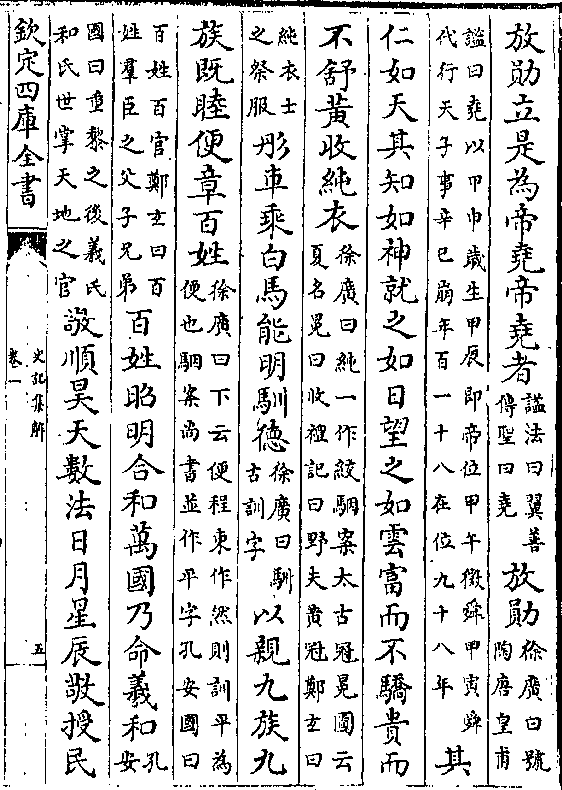 放勛立是為帝堯帝堯者諡法曰翼善傳聖曰堯放勛徐廣曰號陶唐皇甫
諡曰堯以甲申歳生甲辰即帝位甲午徴舜甲寅舜代行天子事辛巳崩年百一十八在位九十八年其
仁如天其知如神就之如日望之如雲富而不驕貴而
不舒黃收純衣徐廣曰純一作絞駰案太古冠冕圖云夏名冕曰收禮記曰野夫黄冠鄭玄曰
純衣士之祭服彤車乘白馬能明馴德徐廣曰馴古訓字以親九族九
族既睦便章百姓徐廣曰下云便程東作然則訓平為便也駰案尚書並作平字孔安國曰
百姓百官鄭玄曰百姓羣臣之父子兄弟百姓昭明合和萬國乃命羲和孔安
國曰重黎之後羲氏和氏世掌天地之官敬順昊天數法日月星辰敬授民
欽定四庫全書
史記集解
卷一
五